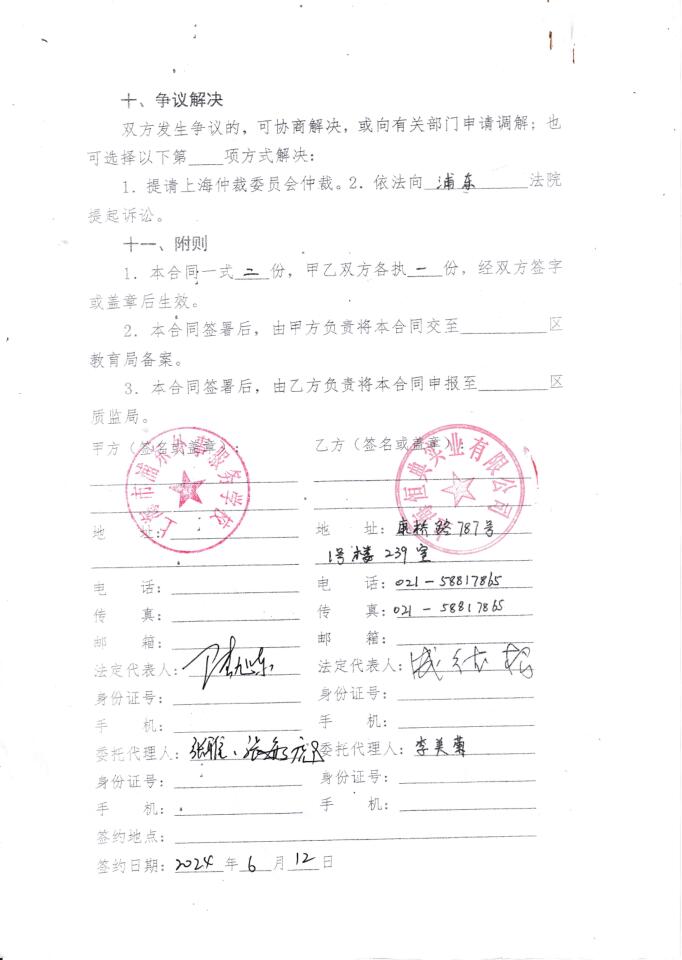 十、争议解决
双方发生争议的，可协商解决，或向有关部门申请调解；也
可选择以下第____项方式解决：
1．提请上海仲裁委员会仲裁。2．依法向 浦东 法院
提起诉讼。
十一、附则
1．本合同一式 二 份，甲乙双方各执 一 份，经双方签字
或盖章后生效。
2．本合同签署后，由甲方负责将本合同交至________区
教育局备案。
3．本合同签署后，由乙方负责将本合同申报至________区
质监局。
甲方（签名或盖章）： 乙方（签名或盖章）：
上海市浦东外事服务学校
恒典实业有限公司
地 址： 地 址：康桥路787号
1号楼239室
电 话： 电 话：021-58817865
传 真： 传 真：021-58817865
邮 箱： 邮 箱：
法定代表人： 法定代表人：
身份证号： 身份证号：
手 机： 手 机：
委托代理人： 委托代理人：李美菊
身份证号： 身份证号：
手 机： 手 机：
签约地点：
签约日期：2024年6月12日